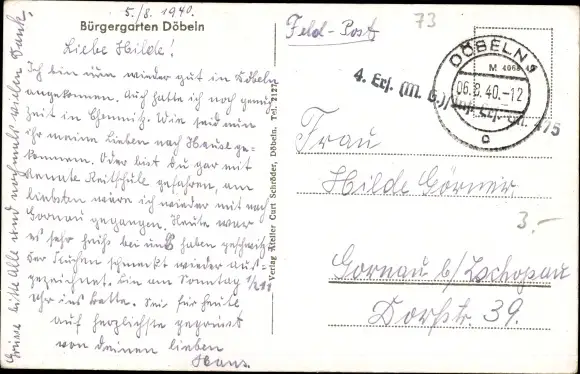 5./8. 1940.
Bürgergarten Döbeln
Liebe Hilde!
Ich bin nun wieder gut in Döbeln
angekommen. Auch hatte ich noch genug
Zeit in Chemnitz. Wie seid nun
ihr meine Lieben nach Hause ge-
kommen. Oder bist du gar mit
Reitschule gefahren, am
liebsten wäre ich wieder mit nach
Gornau gegangen. Heute war
es sehr heiß bei uns haben geschwitzt
der Kuchen schmeckt wieder aus-
gezeichnet. Bin am Sonntag 1/2 11
Uhr ins Bette. Sei für heute
auf herzlichste gegrüsst
von deinen lieben
Hans.
Grüsse bitte Alle und nochmals vielen Dank.
Verlag Atelier Curt Schröder, Döbeln. Tel. 2127
Feld-Post
73
DÖBELN
06.8.40.-12
4. Ers. (M. G.)
475
Frau
Hilde Görner
3.-
Gornau b/Zschopau
Dorfstr. 39.